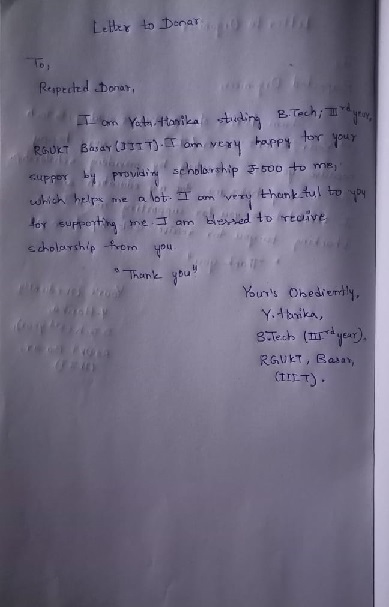 Letter to Donar
To,
Respected Donar,
I am Yata.Harika studing B.Tech, III rd year,
RGUKT Basar (IIIT). I am very happy for your
suppor by providing scholarship ₹500 to me,
which helps me a lot. I am very thankful to you
for supporting me. I am blessed to recive
scholarship from you
"Thank you"
Your's Obediently,
Y.Harika,
B.Tech (III rd year).
RGUKT, Basar,
(IIIT).